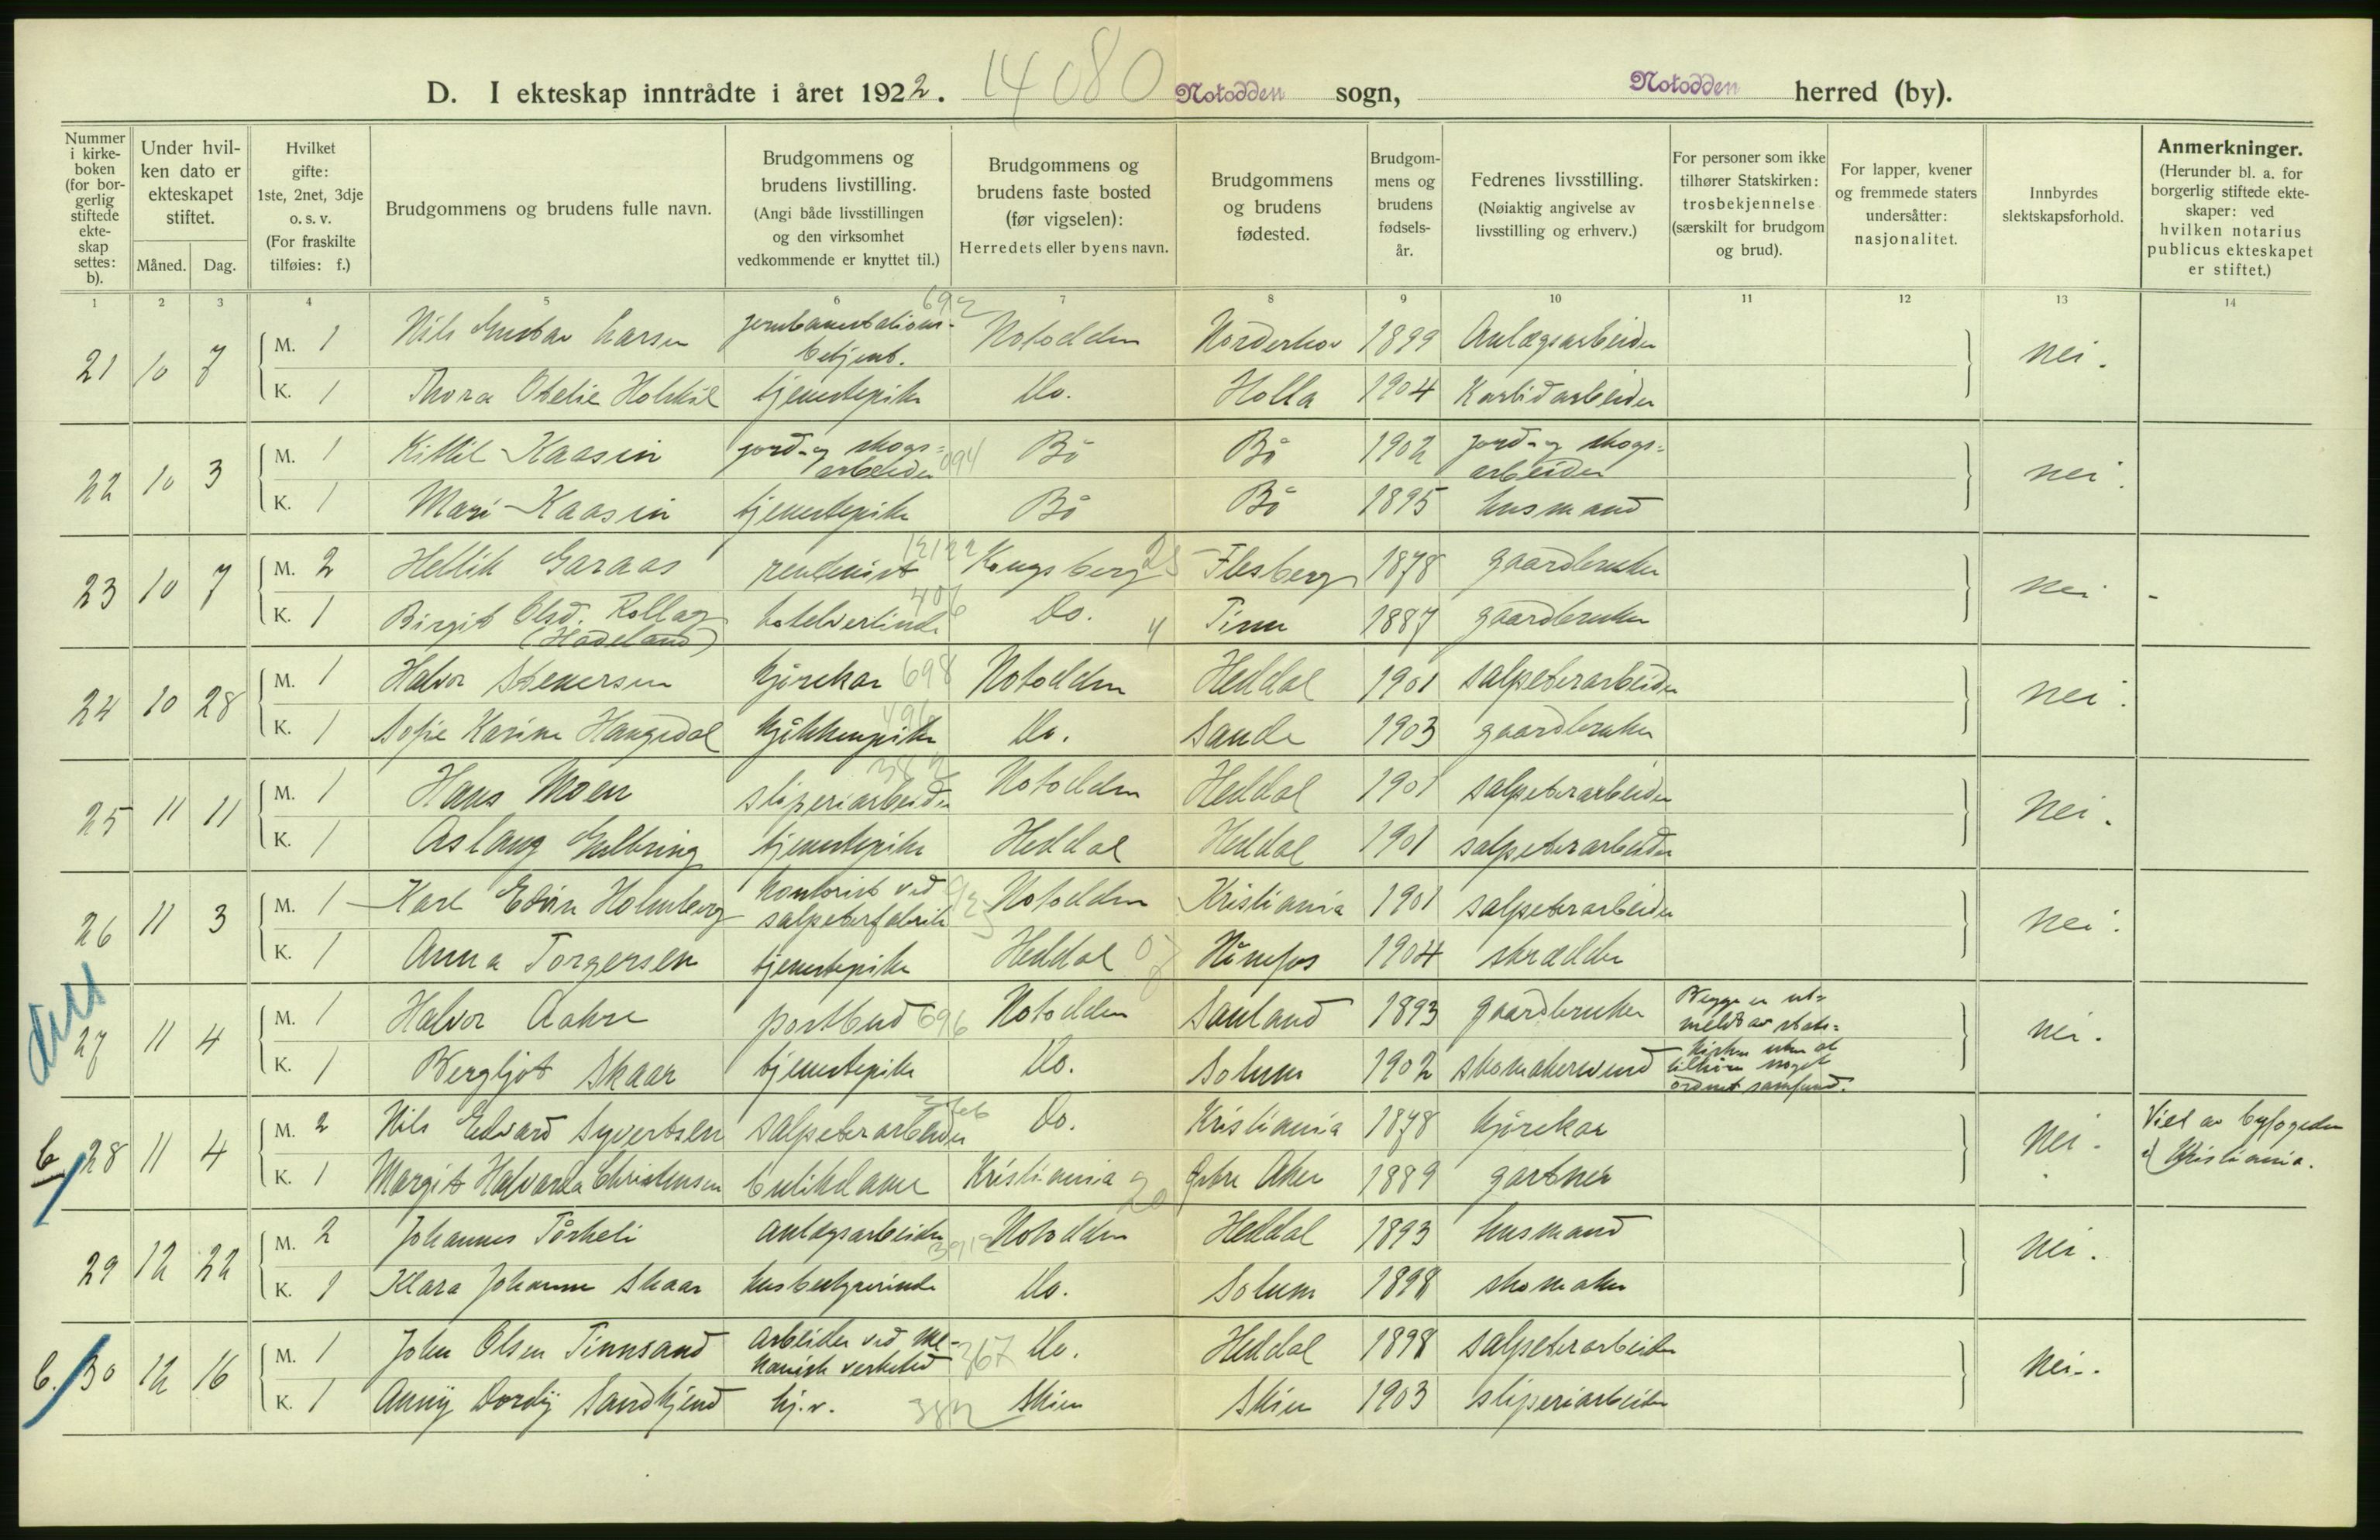 D. I ekteskap inntrådte i året 1922. 14080 Notodden sogn, Notodden herred (by).
Nummer i kirkeboken (for borgerlig stiftede ekteskap settes: b).
Under hvilken dato er ekteskapet stiftet.
Måned. Dag.
Hvilket gifte: 1ste, 2net, 3dje o. s. v. (For fraskilte tilføies: f.)
Brudgommens og brudens fulle navn.
Brudgommens og brudens livstilling. (Angi både livsstillingen og den virksomhet vedkommende er knyttet til.)
Brudgommens og brudens faste bosted (før vigselen): Herredets eller byens navn.
Brudgommens og brudens fødested.
Brudgommens og brudens fødselsår.
Fedrenes livsstilling. (Nøiaktig angivelse av livsstilling og erhverv.)
For personer som ikke tilhører Statskirken: trosbekjennelse (særskilt for brudgom og brud).
For lapper, kvener og fremmede staters undersåtter: nasjonalitet.
Innbyrdes slektskapsforhold.
Anmerkninger. (Herunder bl. a. for borgerlig stiftede ekteskaper: ved hvilken notarius publicus ekteskapet er stiftet.)
1 2 3 4 5 6 7 8 9 10 11 12 13 14
21 10 7 M. 1 Nils Gustav Larsen jernbanestations-betjent. Notodden Norderhov 1899 Anlægsarbeider nei.
K. 1 Thora Otelie Holskil tjenestepike Do. Holla 1904 Karbidarbeider
22 10 3 M. 1 Kittil Kaasin jord- og skogs-arbeider 094 Bö Bö 1902 jord- og skogs-arbeider nei.
K. 1 Mari Kaasin tjenestepike Bö Bö 1895 husmand
23 10 7 M. 2 Hellik Garaas rentenist Kongsberg Flesberg 1878 gaardbruker nei -
K. 1 Birgit Olsd. Rollag (Hadeland) hotelvertinde 406 Do. Tinn 1887 gaardbruker
24 10 28 M. 1 Halvor Stenersen kjørekar 698 Notodden Heddal 1901 salpeterarbeider nei.
K. 1 Sofie Karine Haugedal kjøkkenpike 496 Do. Sande 1903 gaardbruker
25 11 11 M. 1 Hans Moen sliperiarbeider 382 Notodden Heddal 1901 salpeterarbeider Nei.
K. 1 Aslaug Gulbring tjenestepike Heddal Heddal 1901 salpeterarbeider
26 11 3 M. 1 Karl Edvin Holmberg kontorist ved salpeterfabrik Notodden Kristiania 1901 salpeterarbeider nei.
K. 1 Anna Torgersen tjenestepike Heddal 07 Hönefos 1904 skrædder
27 11 4 M. 1 Halvor Aakre postbud 696 Notodden Sauland 1893 gaardbruker Begge er ut-meldt av stats-kirken uten at tilhøre noget ordnet samfund. nei.
K. 1 Bergljot Skaar tjenestepike Do. Solum 1902 skomakersvend
b. 28 11 4 M. 2 Nils Edvard Syvertsen salpeterarbeider Do. Kristiania 1878 kjørekar nei. Viet av byfogeden i Kristiania.
K. 1 Margit Halvarda Christensen butikdame Kristiania 20 Østre Aker 1889 gartner
29 12 22 M. 2 Johannes Tårheli anlægsarbeider Notodden Heddal 1893 husmand Nei.
K. 1 Klara Johanne Skaar husbestyrerinde Do. Solum 1898 skomaker
b. 30 12 16 M. 1 John Olsen Tinnsand arbeider ved me-kanisk verksted 367 Do. Heddal 1898 salpeterarbeider Nei.
K. 1 Anny Dordy Sandkjend hj.v. 382 Skien Skien 1903 sliperiarbeider